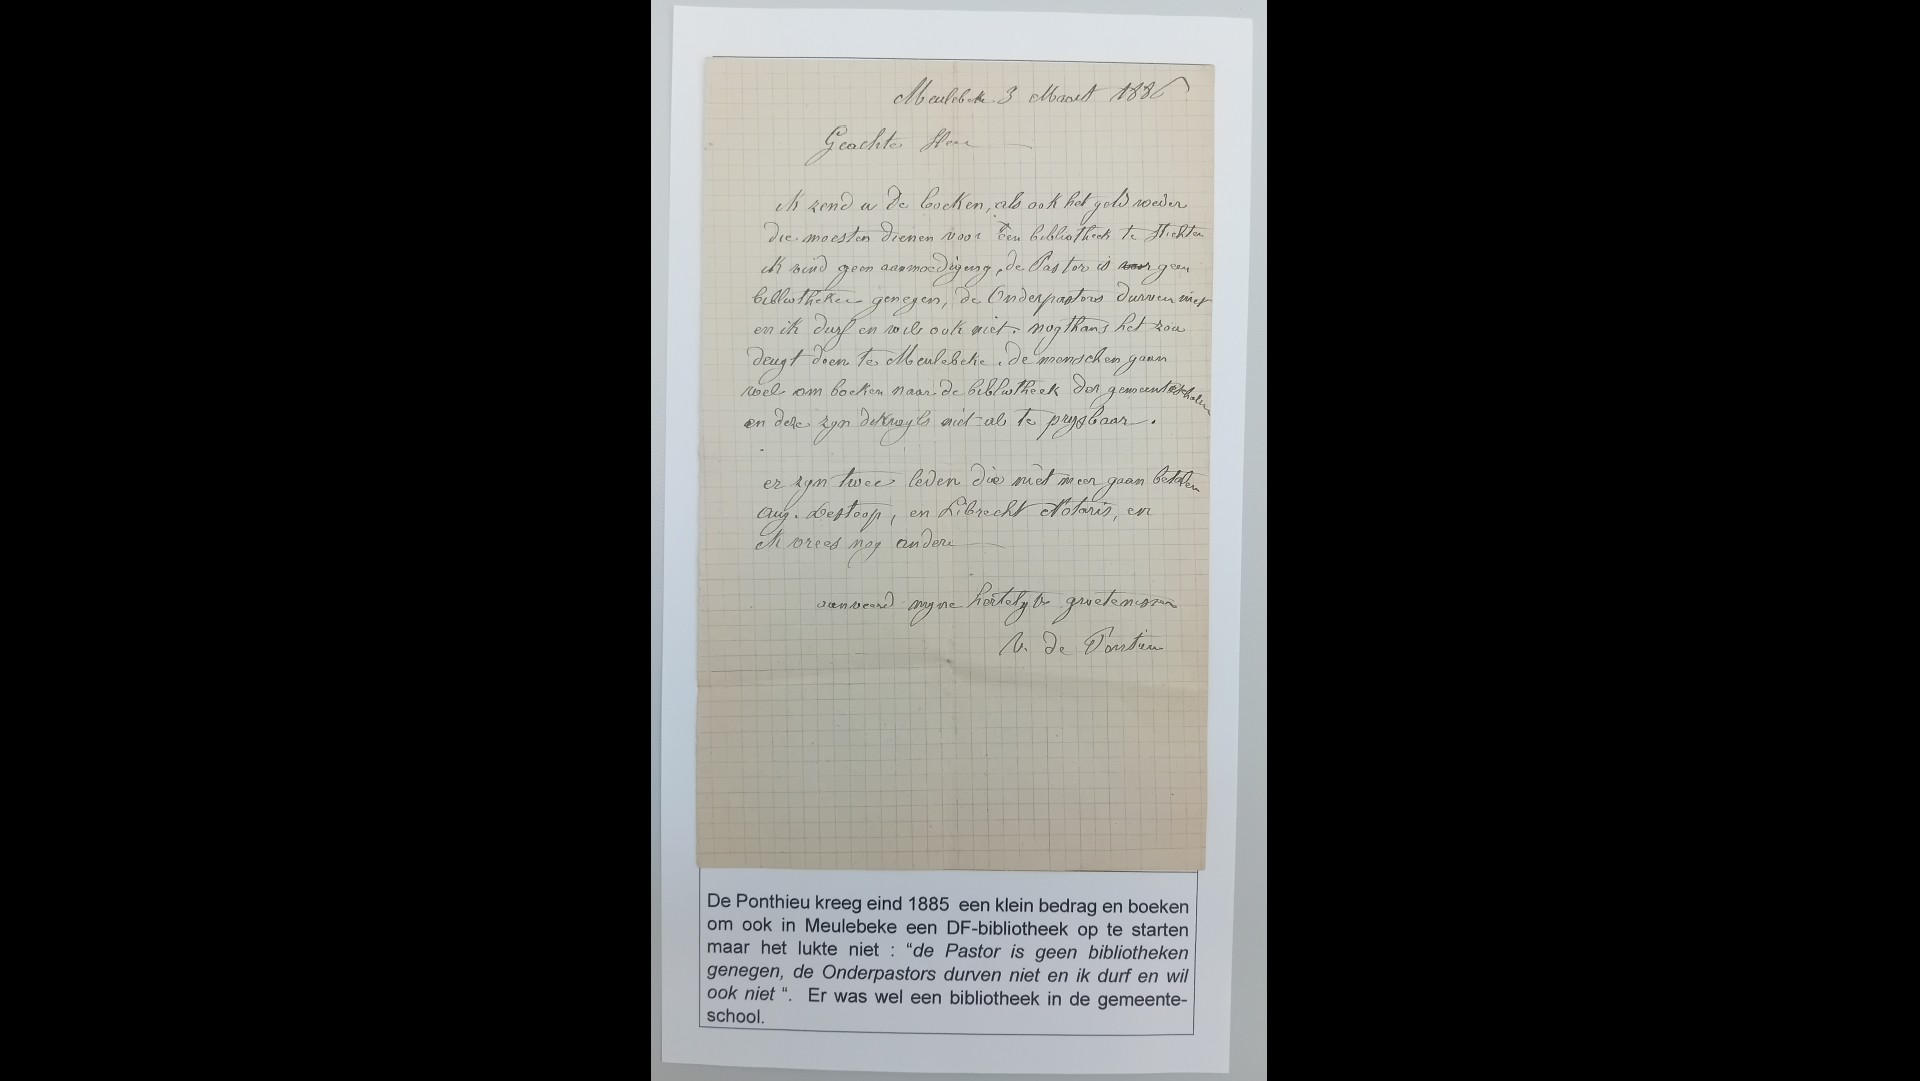 Meulebeke 3 Maart 1886
Geachte Heer
ik zend u de boeken, als ook het geld weder
die moesten dienen voor een bibliotheek te stichten
ik vind geen aanmoediging, de Pastor is geen
bibliotheken genegen, de Onderpastors durven niet
en ik durf en wil ook niet. nogthans het zou
deugt doen te Meulebeke. de menschen gaan
wel om boeken naar de bibliotheek der gemeentescholen
en deze zyn dikwyls niet al te prysbaar.
er zyn twee leden die niet meer gaan betalen
Aug. Destoop, en Librecht Notaris, en
ik vrees nog andere
aanveerd myne hertelyke groetenissen
de Pontieu
De Ponthieu kreeg eind 1885 een klein bedrag en boeken
om ook in Meulebeke een DF-bibliotheek op te starten
maar het lukte niet : “de Pastor is geen bibliotheken
genegen, de Onderpastors durven niet en ik durf en wil
ook niet “. Er was wel een bibliotheek in de gemeente-
school.